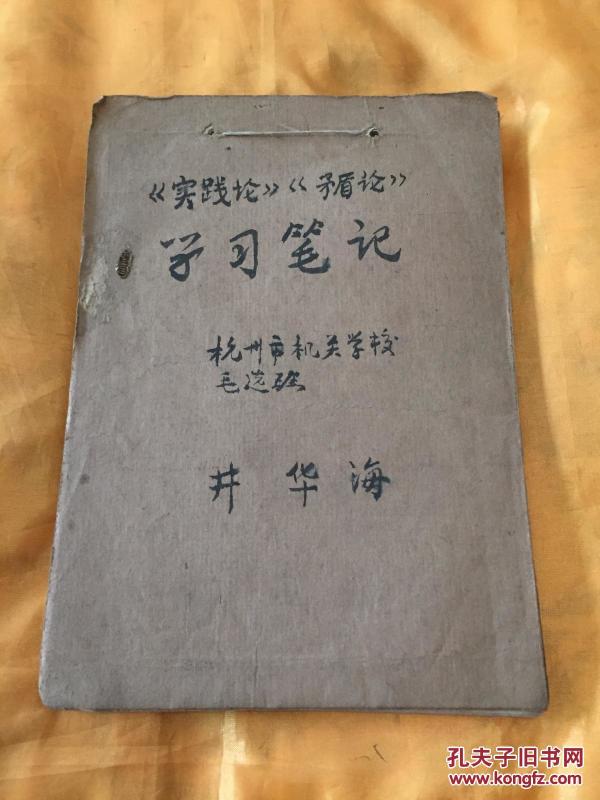 《实践论》《矛盾论》
学习笔记
杭州市机关学校
毛选班
井华海
孔夫子旧书网
www.kongfz.com